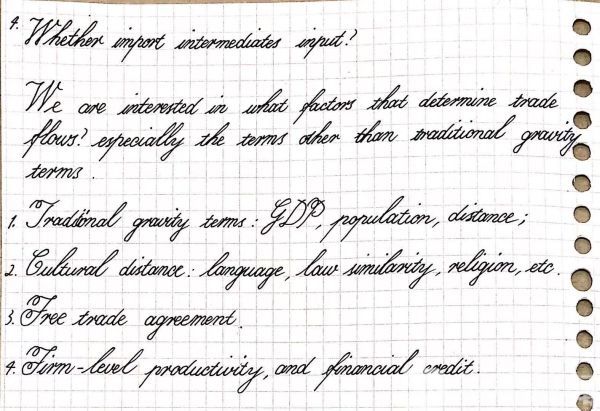 4. Whether import intermediates input?
We are interested in what factors that determine trade
flows? especially the terms other than traditional gravity
terms.
1. Traditional gravity terms: GDP, population, distance;
2. Cultural distance: language, law similarity, religion, etc.
3. Free trade agreement.
4. Firm-level productivity, and financial credit.